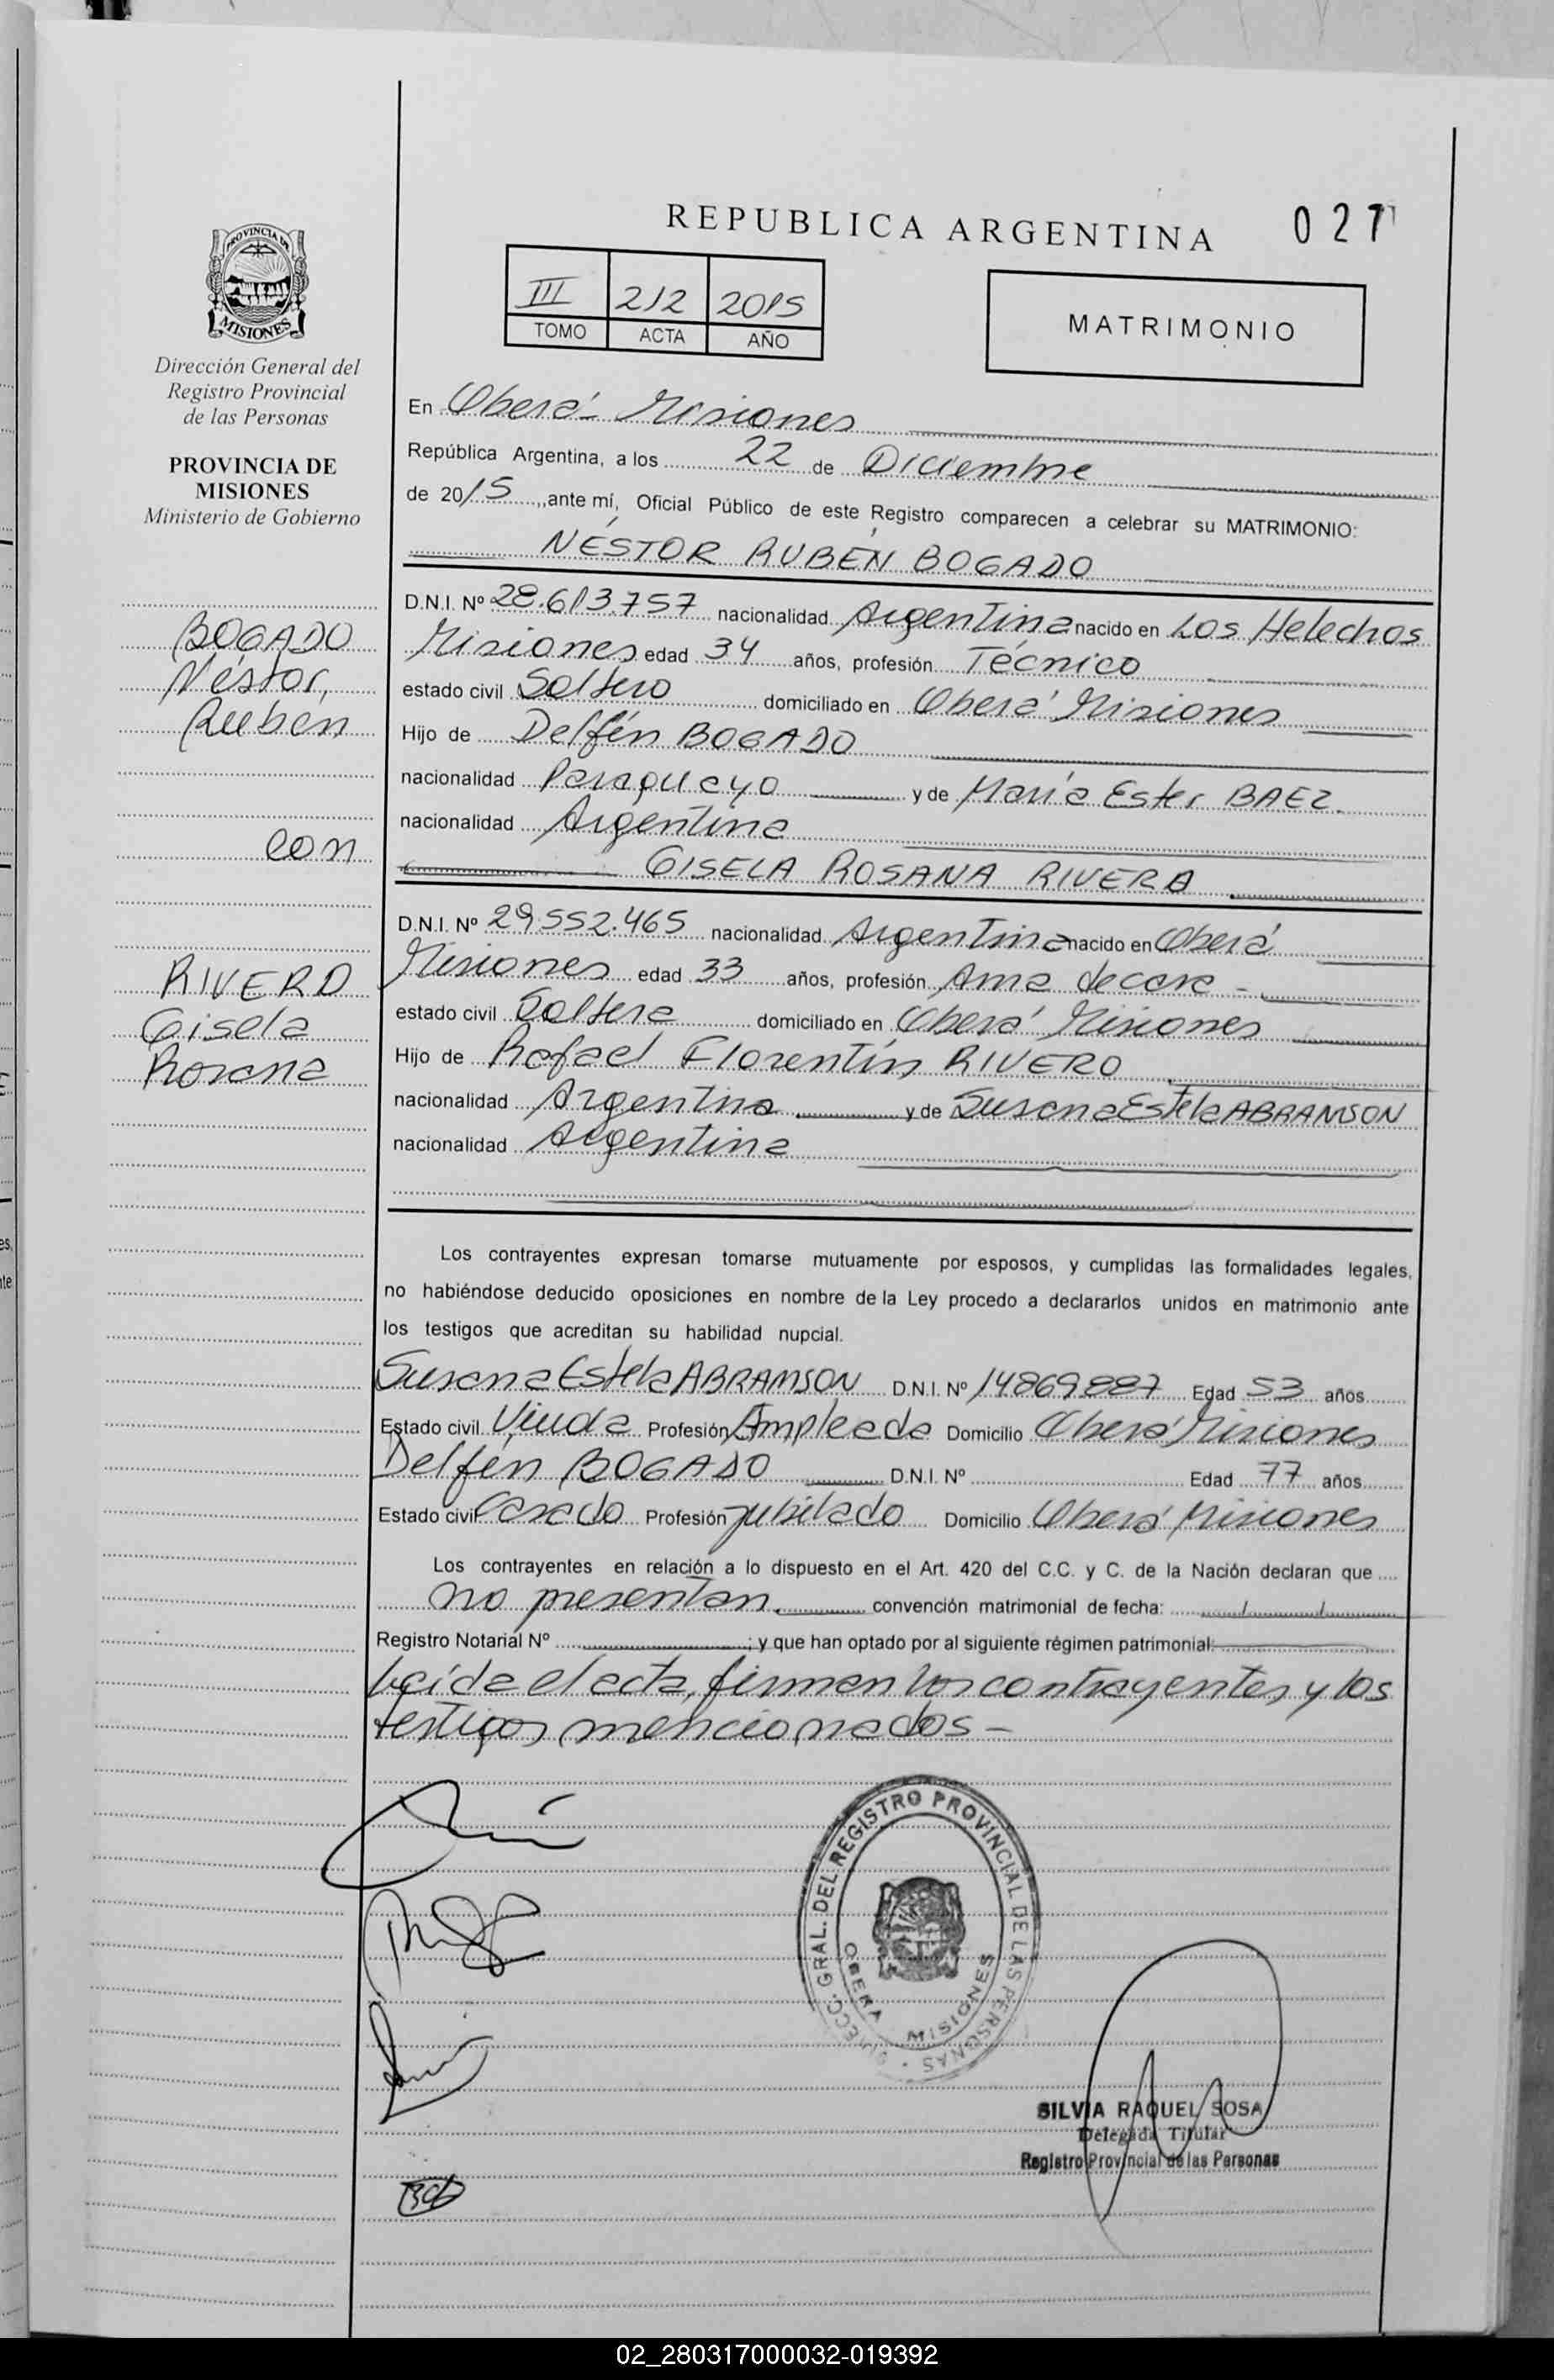 REPUBLICA ARGENTINA
027
III 212 2015
TOMO ACTA AÑO
MATRIMONIO
PROVINCIA DE
MISIONES
Dirección General del
Registro Provincial
de las Personas
PROVINCIA DE
MISIONES
Ministerio de Gobierno
En Oberá - Misiones
República Argentina, a los 22 de Diciembre
de 2015, ante mí, Oficial Público de este Registro comparecen a celebrar su MATRIMONIO:
NÉSTOR RUBÉN BOGADO
BOGADO
Néstor,
Rubén
con
RIVERO
Gisela
Rosana
D.N.I. Nº 28.613.757 nacionalidad Argentina nacido en Los Helechos
Misiones edad 34 años, profesión Técnico
estado civil Soltero domiciliado en Oberá Misiones
Hijo de Delfín BOGADO
nacionalidad Paraguayo y de María Ester BAEZ
nacionalidad Argentina
GISELA ROSANA RIVERO
D.N.I. Nº 29.552.465 nacionalidad Argentina nacido en Oberá
Misiones edad 33 años, profesión Ama de casa -
estado civil Soltera domiciliado en Oberá Misiones
Hijo de Rafael Florentín RIVERO
nacionalidad Argentina y de Susana Estela ABRAMSON
nacionalidad Argentina
Los contrayentes expresan tomarse mutuamente por esposos, y cumplidas las formalidades legales,
no habiéndose deducido oposiciones en nombre de la Ley procedo a declararlos unidos en matrimonio ante
los testigos que acreditan su habilidad nupcial.
Susana Estela ABRAMSON D.N.I. Nº 14869887 Edad 53 años
Estado civil Viuda Profesión Empleada Domicilio Oberá Misiones
Delfín BOGADO D.N.I. Nº Edad 77 años
Estado civil Casado Profesión Jubilado Domicilio Oberá Misiones
Los contrayentes en relación a lo dispuesto en el Art. 420 del C.C. y C. de la Nación declaran que
no presentan convención matrimonial de fecha: / /
Registro Notarial Nº ; y que han optado por al siguiente régimen patrimonial:
Leída el acta, firman los contrayentes y los
testigos mencionados -
DIRECC. GRAL. DEL REGISTRO PROVINCIAL DE LAS PERSONAS
OBERA MISIONES
SILVIA RAQUEL SOSA
Delegada Titular
Registro Provincial de las Personas
02_280317000032-019392